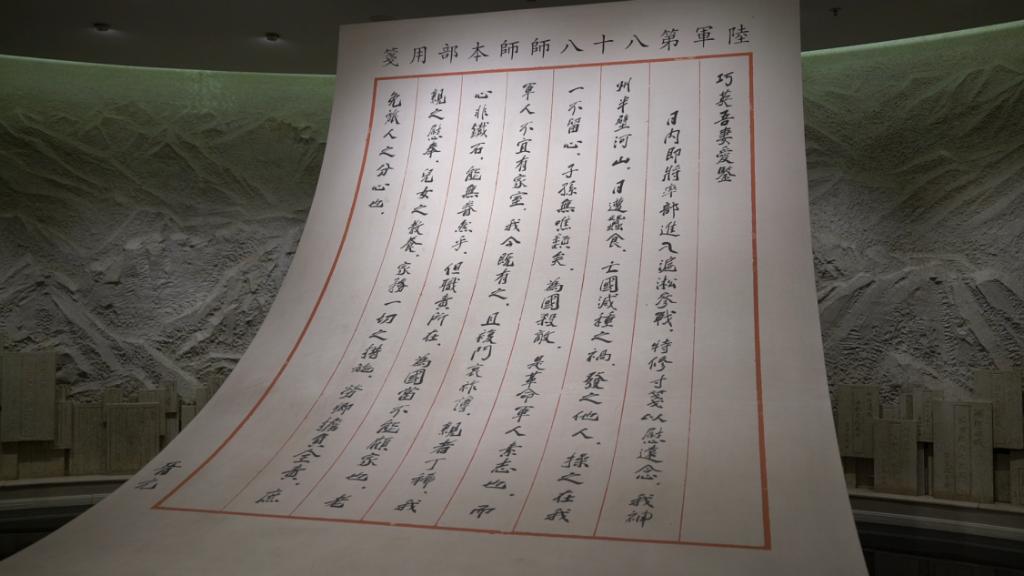 陸軍第八十八師師本部用箋
巧英吾妻愛鑒
日內即將率部進入滬淞參戰，特修寸箋以慰遠念，我神
州半壁河山，日遭蠶食，亡國滅種之禍，發之他人，操之在我
一不留心，子孫無噍類矣，為國殺敵，是革命軍人素志也，而
軍人不宜有家室，我今既有之，且復門衰祚薄，親者丁稀，我
心非鐵石，能無眷然乎，但職責所在，為國當不能顧家也，老
親之慰奉，兒女之教養，家務一切之措施，勞卿擔負全責，庶
免旅人之分心也。
晉元